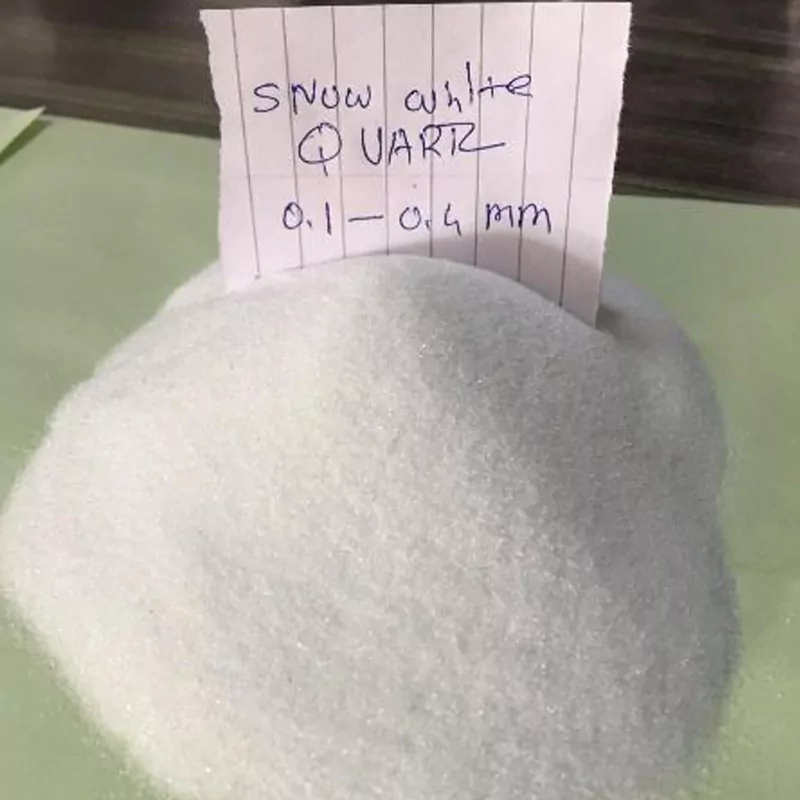 SNOW white
QUARTZ
0.1 - 0.4 mm